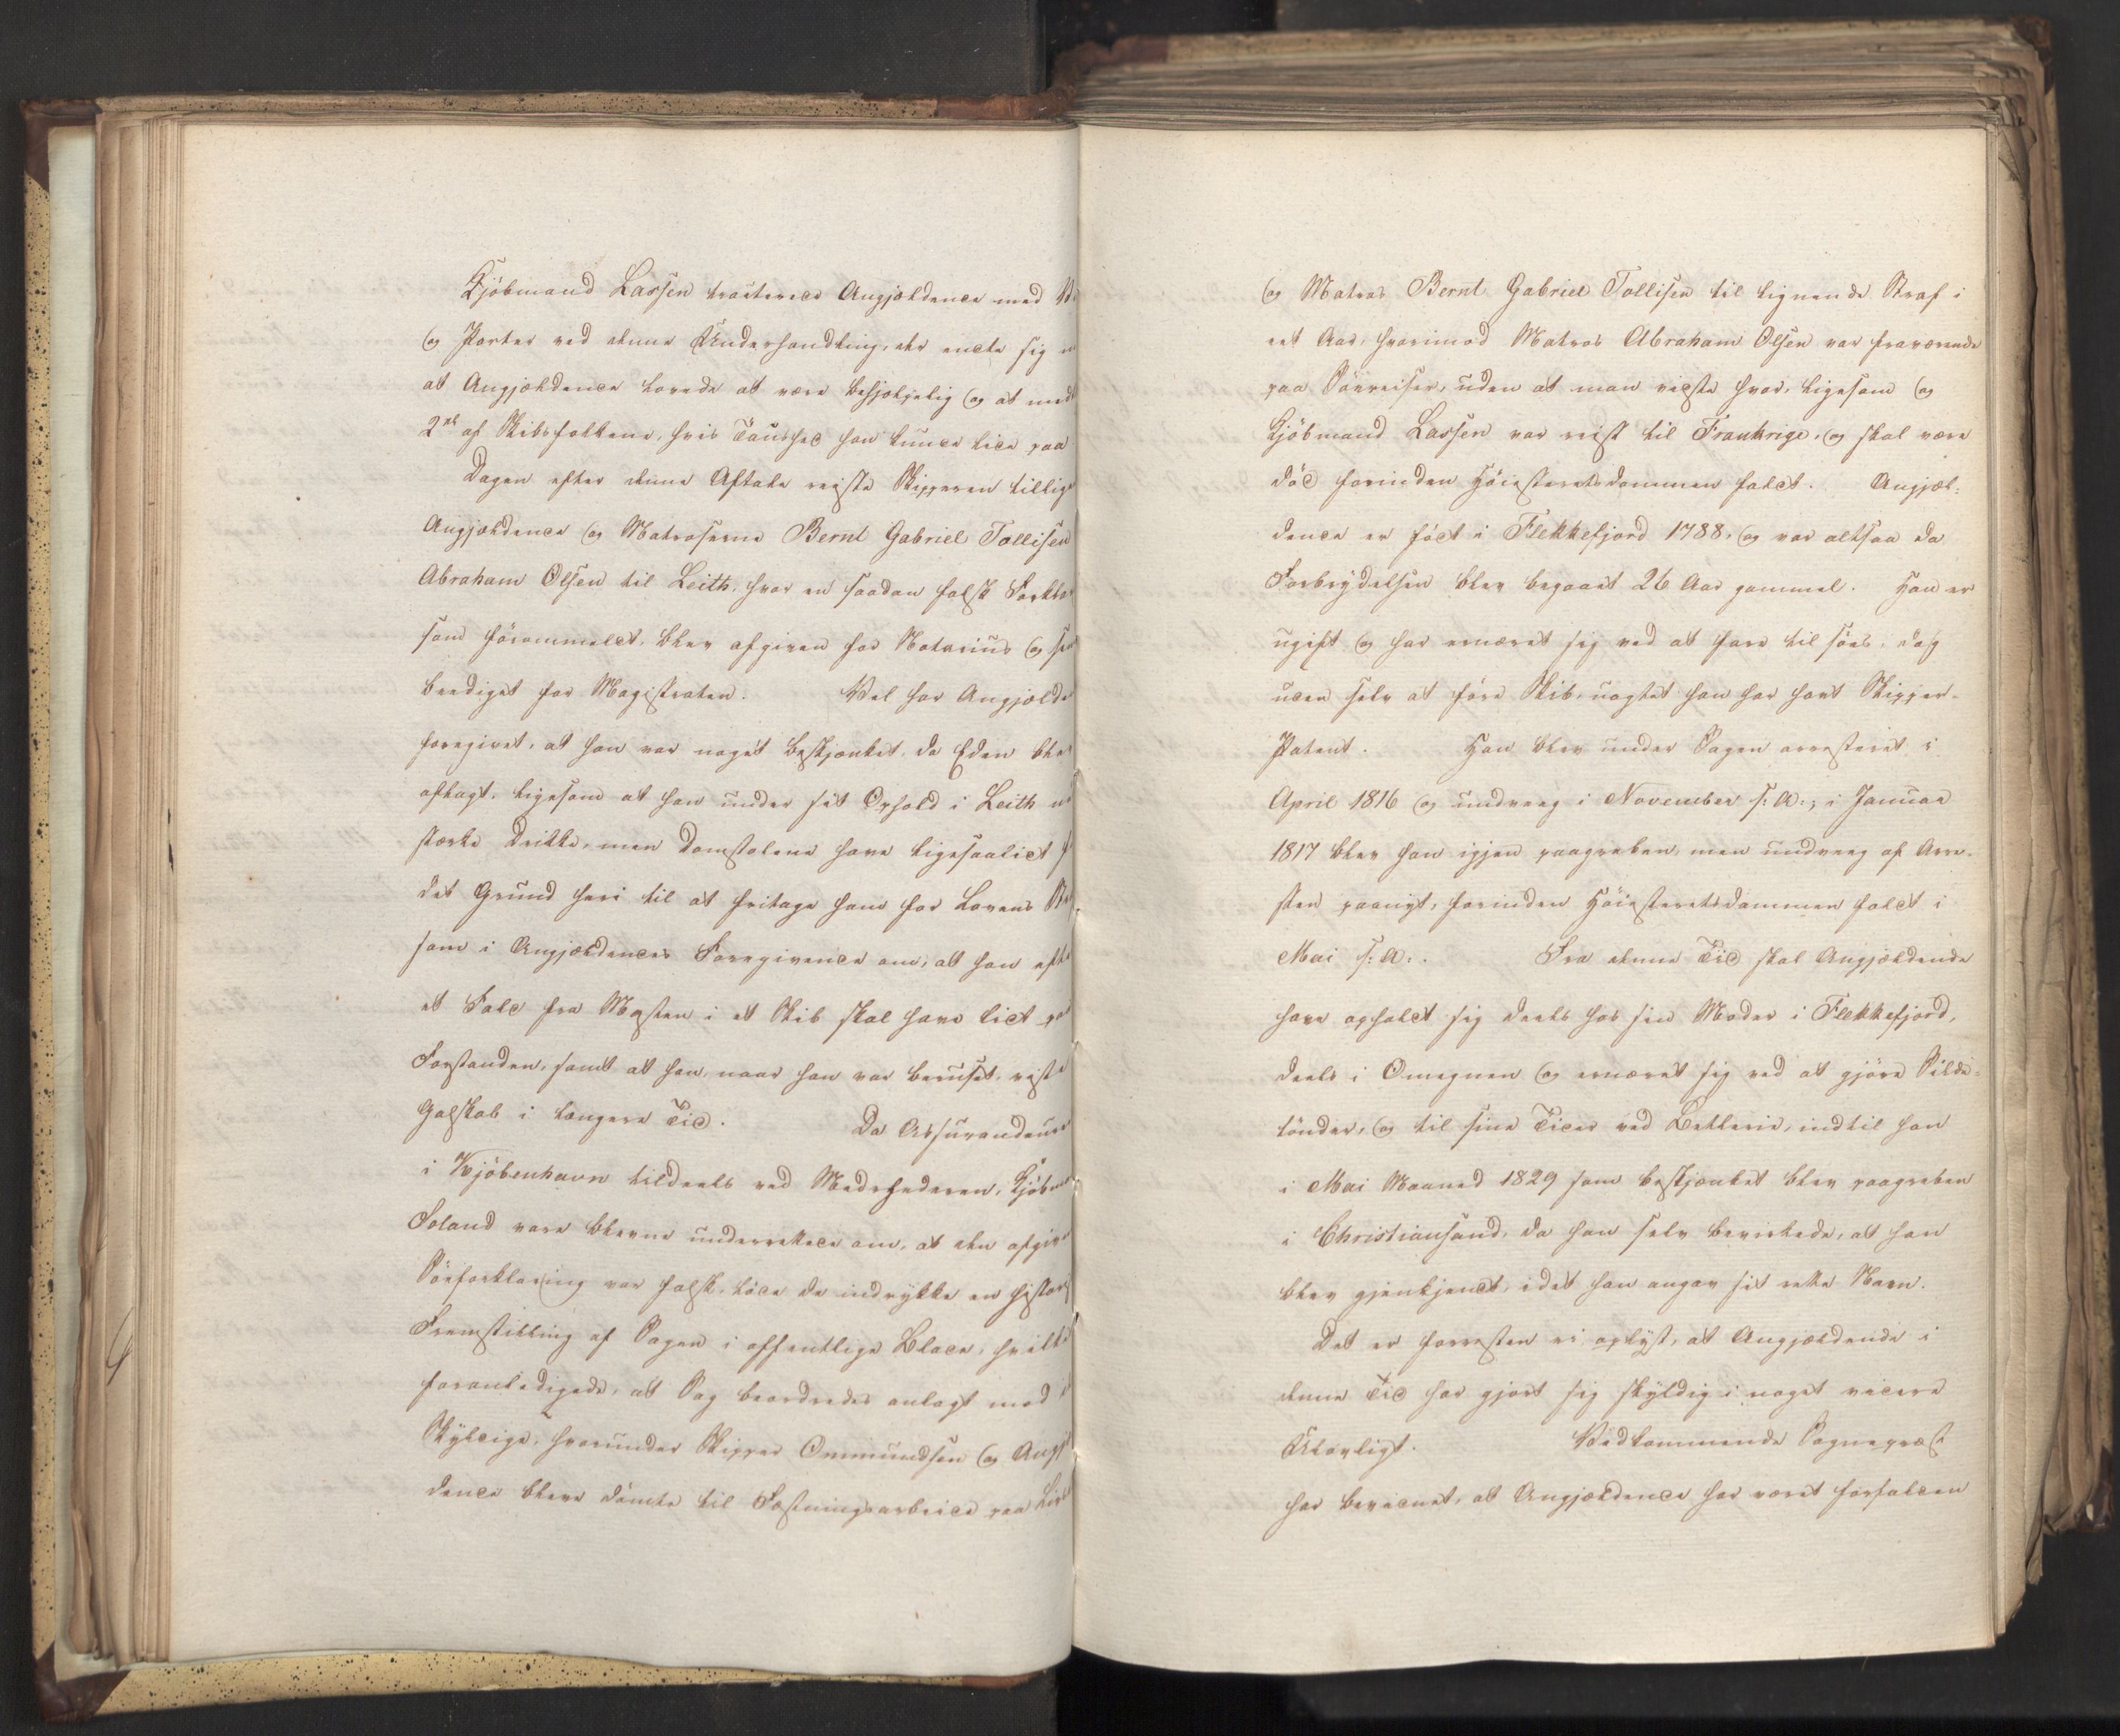 Kjöbmand Lassen tracterede Angjældende med
og Porter ved denne Underhandling, der endte sig
at Angjældende lovede at være behjelpelig og at med
2de af Skibsfolkene, hvis Taushed han kunde lide paa
Dagen efter denne Aftale reiste Skipperen tillige
Angjældende og Matroserne Bernt Gabriel Tollisen
Abraham Olsen til Leith, hvor en saadan falsk Forkla
som förommeldt, blev afgiven for Notarius og
beediget for Magistraten. Vel har Angjælde
foregivet, at han var noget beskjænket, da Eden blev
aflagt, ligesom at han under sit Ophold i Leith
stærke Drikke, men Domstolene have ligesaalidt
det Grund heri til at fritage ham for Lovens
som i Angjældendes Foregivende om, at han efter
et Fald fra Masten i et Skib skal have lidt paa
Forstanden, samt at han, naar han var beruset, viste
Galskab i længere Tid. Da Assurandeure
i Kjöbenhavn tildeels ved Medrhederen, Kjöbm
Foland vare blevne underrettede om, at den afgivne
Söeforklaring var falsk, löde de indrykke en histori
Fremstilling af Sagen i offentlige Blade, hvilke
foranledigede, at Sag beordredes anlagt mod
Skyldige, hvorunder Skipper Ommundsen og Angjæl
dende bleve dömte til Fæstningsarbeide paa Livs
og Matros Bernt Gabriel Tollisen til lignende Straf i
eet Aar, hvorimod Matros Abraham Olsen var fraværende
paa Söereiser, uden at man vidste hvor, ligesom og
Kjöbmand Lassen var reist til Frankrige, og skal være
död forinden Höiesteretsdommen faldt. Angjæl-
dende er föd i Flekkefjord 1788, og var altsaa da
Forbrydelsen blev begaaet 26 Aar gammel. Han er
ugift og har ernæret sig ved at fare til söes, dog
uden selv at före Skib, uagtet han har havt Skipper-
Patent. Han blev under Sagen arresteret i
April 1816 og undveeg i November s: A:, i Januar
1817 blev han igjen paagreben, men undveeg af Arre-
sten paanyt, forinden Höiesteretsdommen faldt i
Mai s: A:. Fra denne Tid skal Angjældende
have opholdt sig deels hos sin Moder i Flekkefjord,
deels i Omegnen og ernæret sig ved at gjöre Silde-
tönder, og til sine Tider ved Betlerie, indtil han
i Mai Maaned 1829 som beskjænket blev paagreben
i Christiansand, da han selv bevirkede, at han
blev gjenkjendt, idet han angav sit rette Navn.
Det er forresten ei oplyst, at Angjældende i
denne Tid har gjort sig skyldig i noget videre
Ulovligt. Vedkommende Sognepræst
har bevidnet, at Angjældende har været forfalden